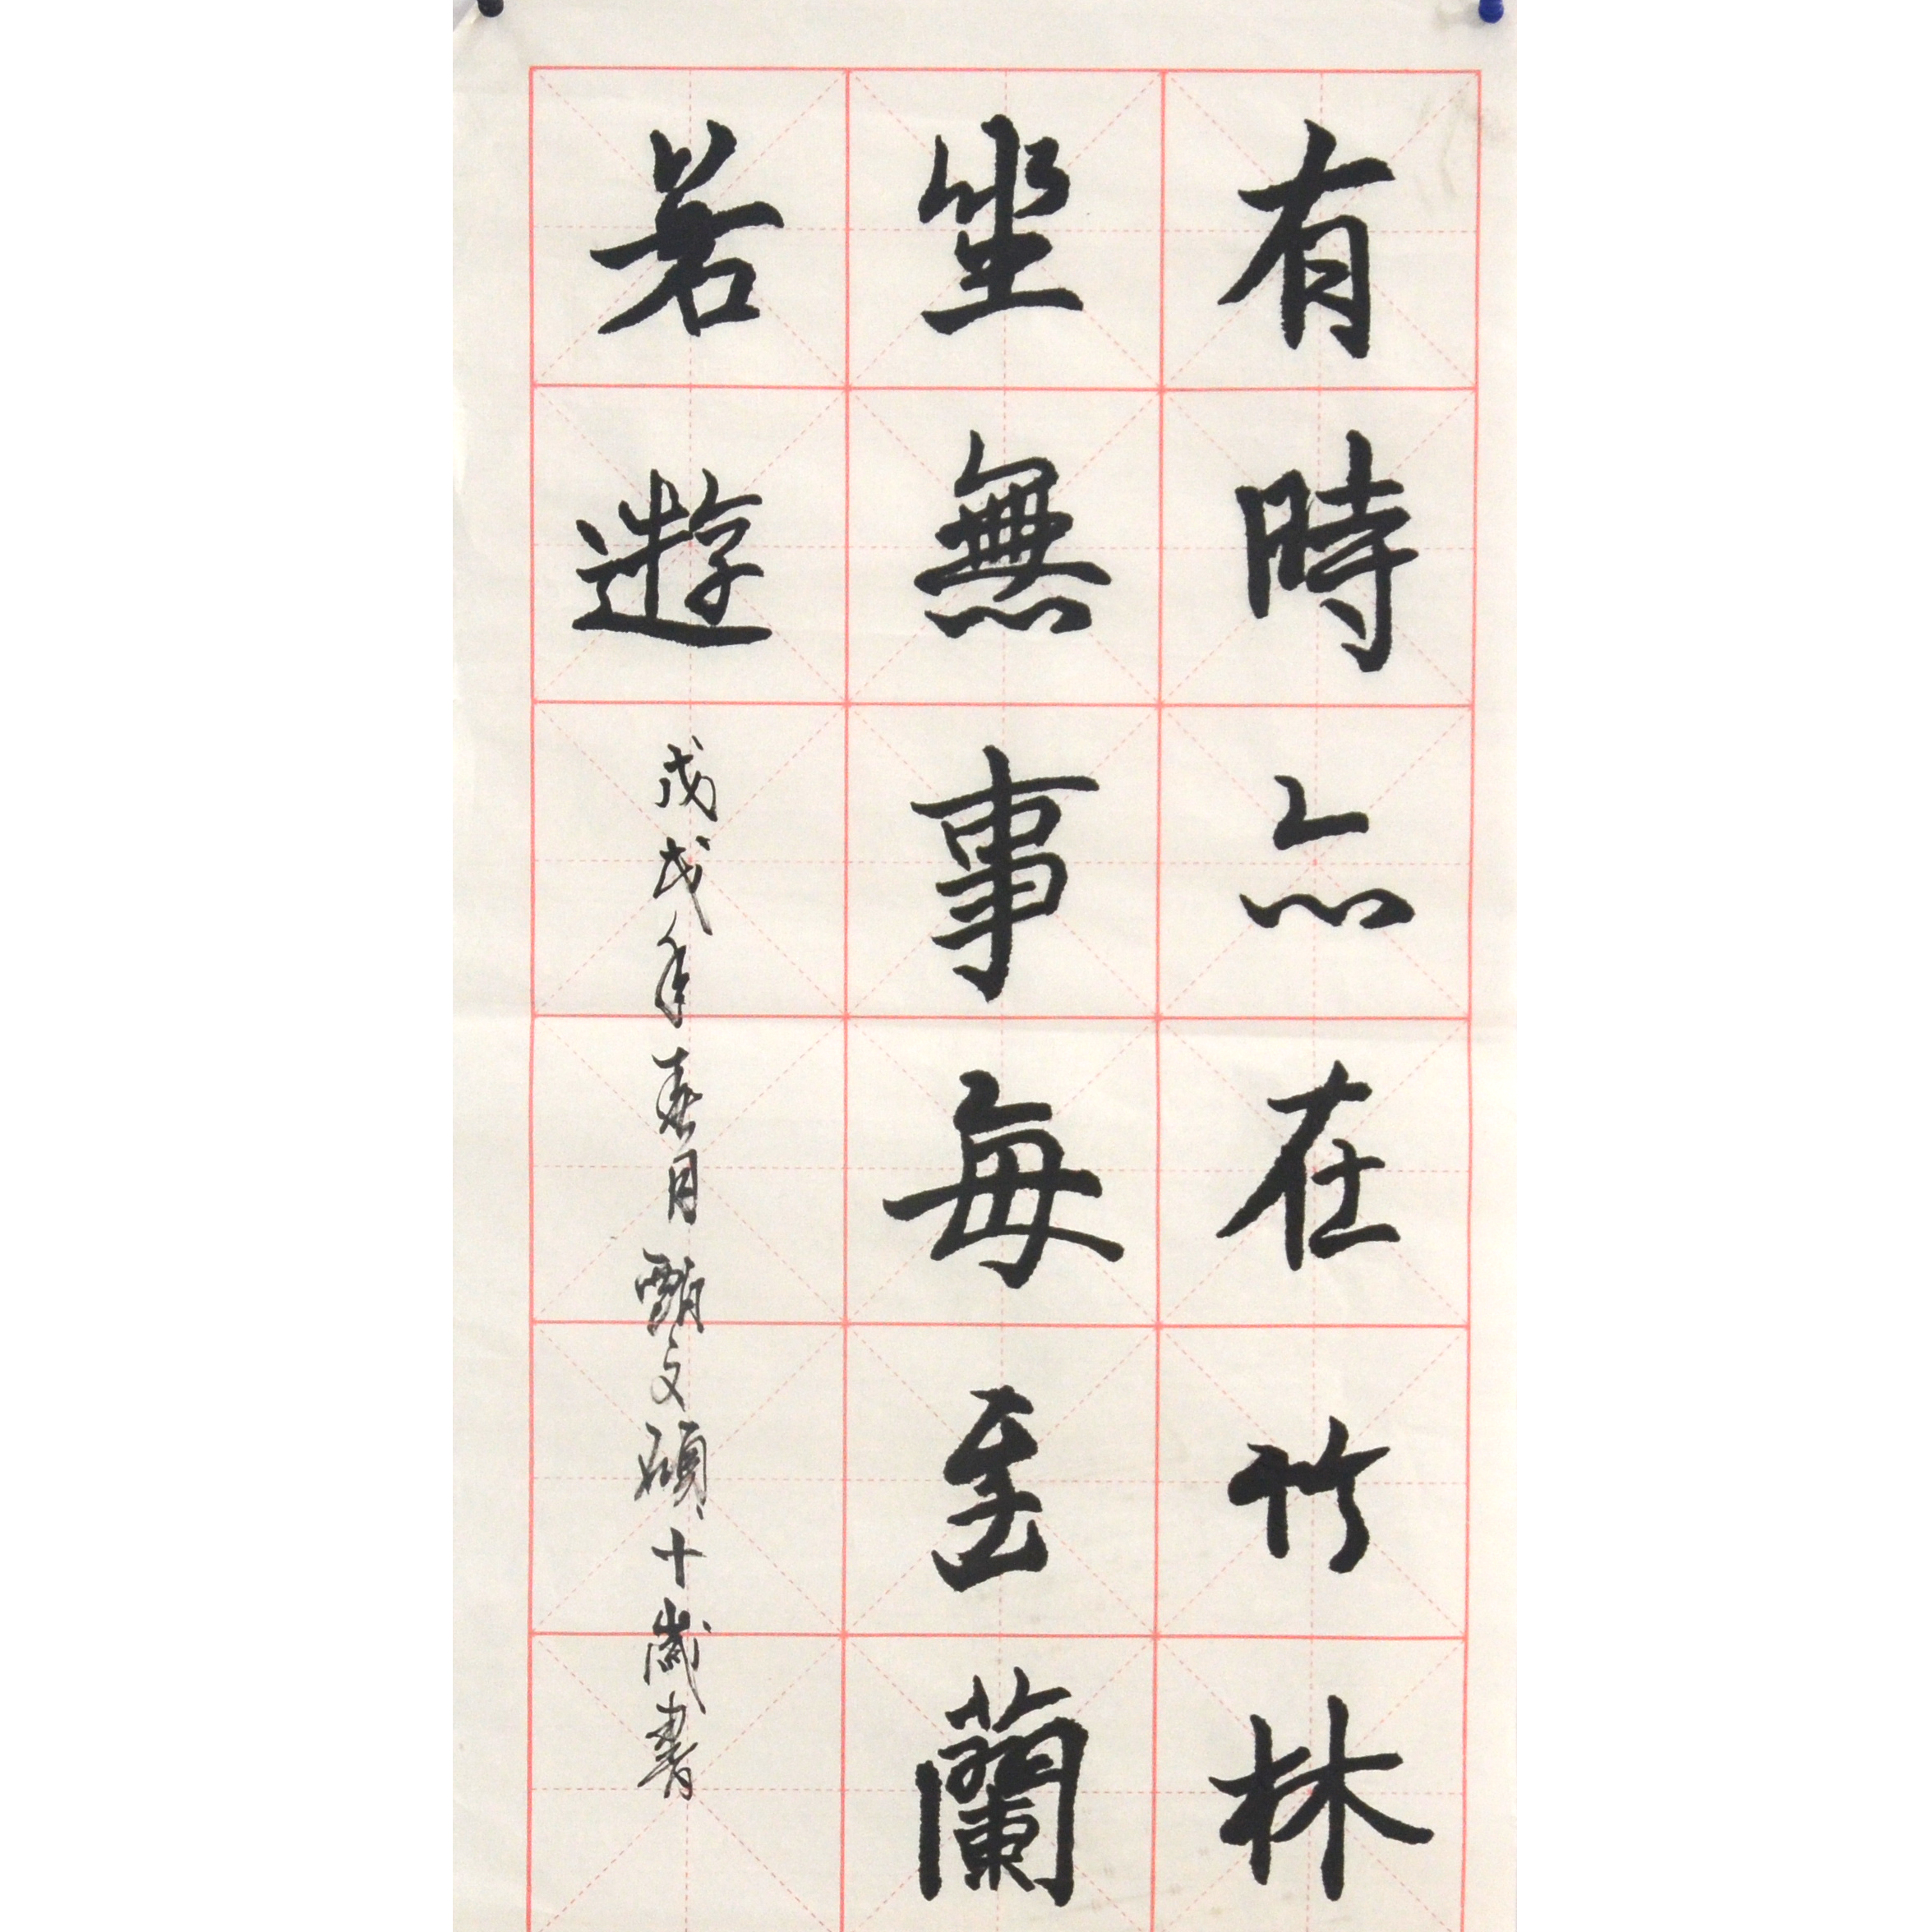 有時亦在竹林
坐無事每至蘭
若遊
戊戌年春月甄文碩十歲書